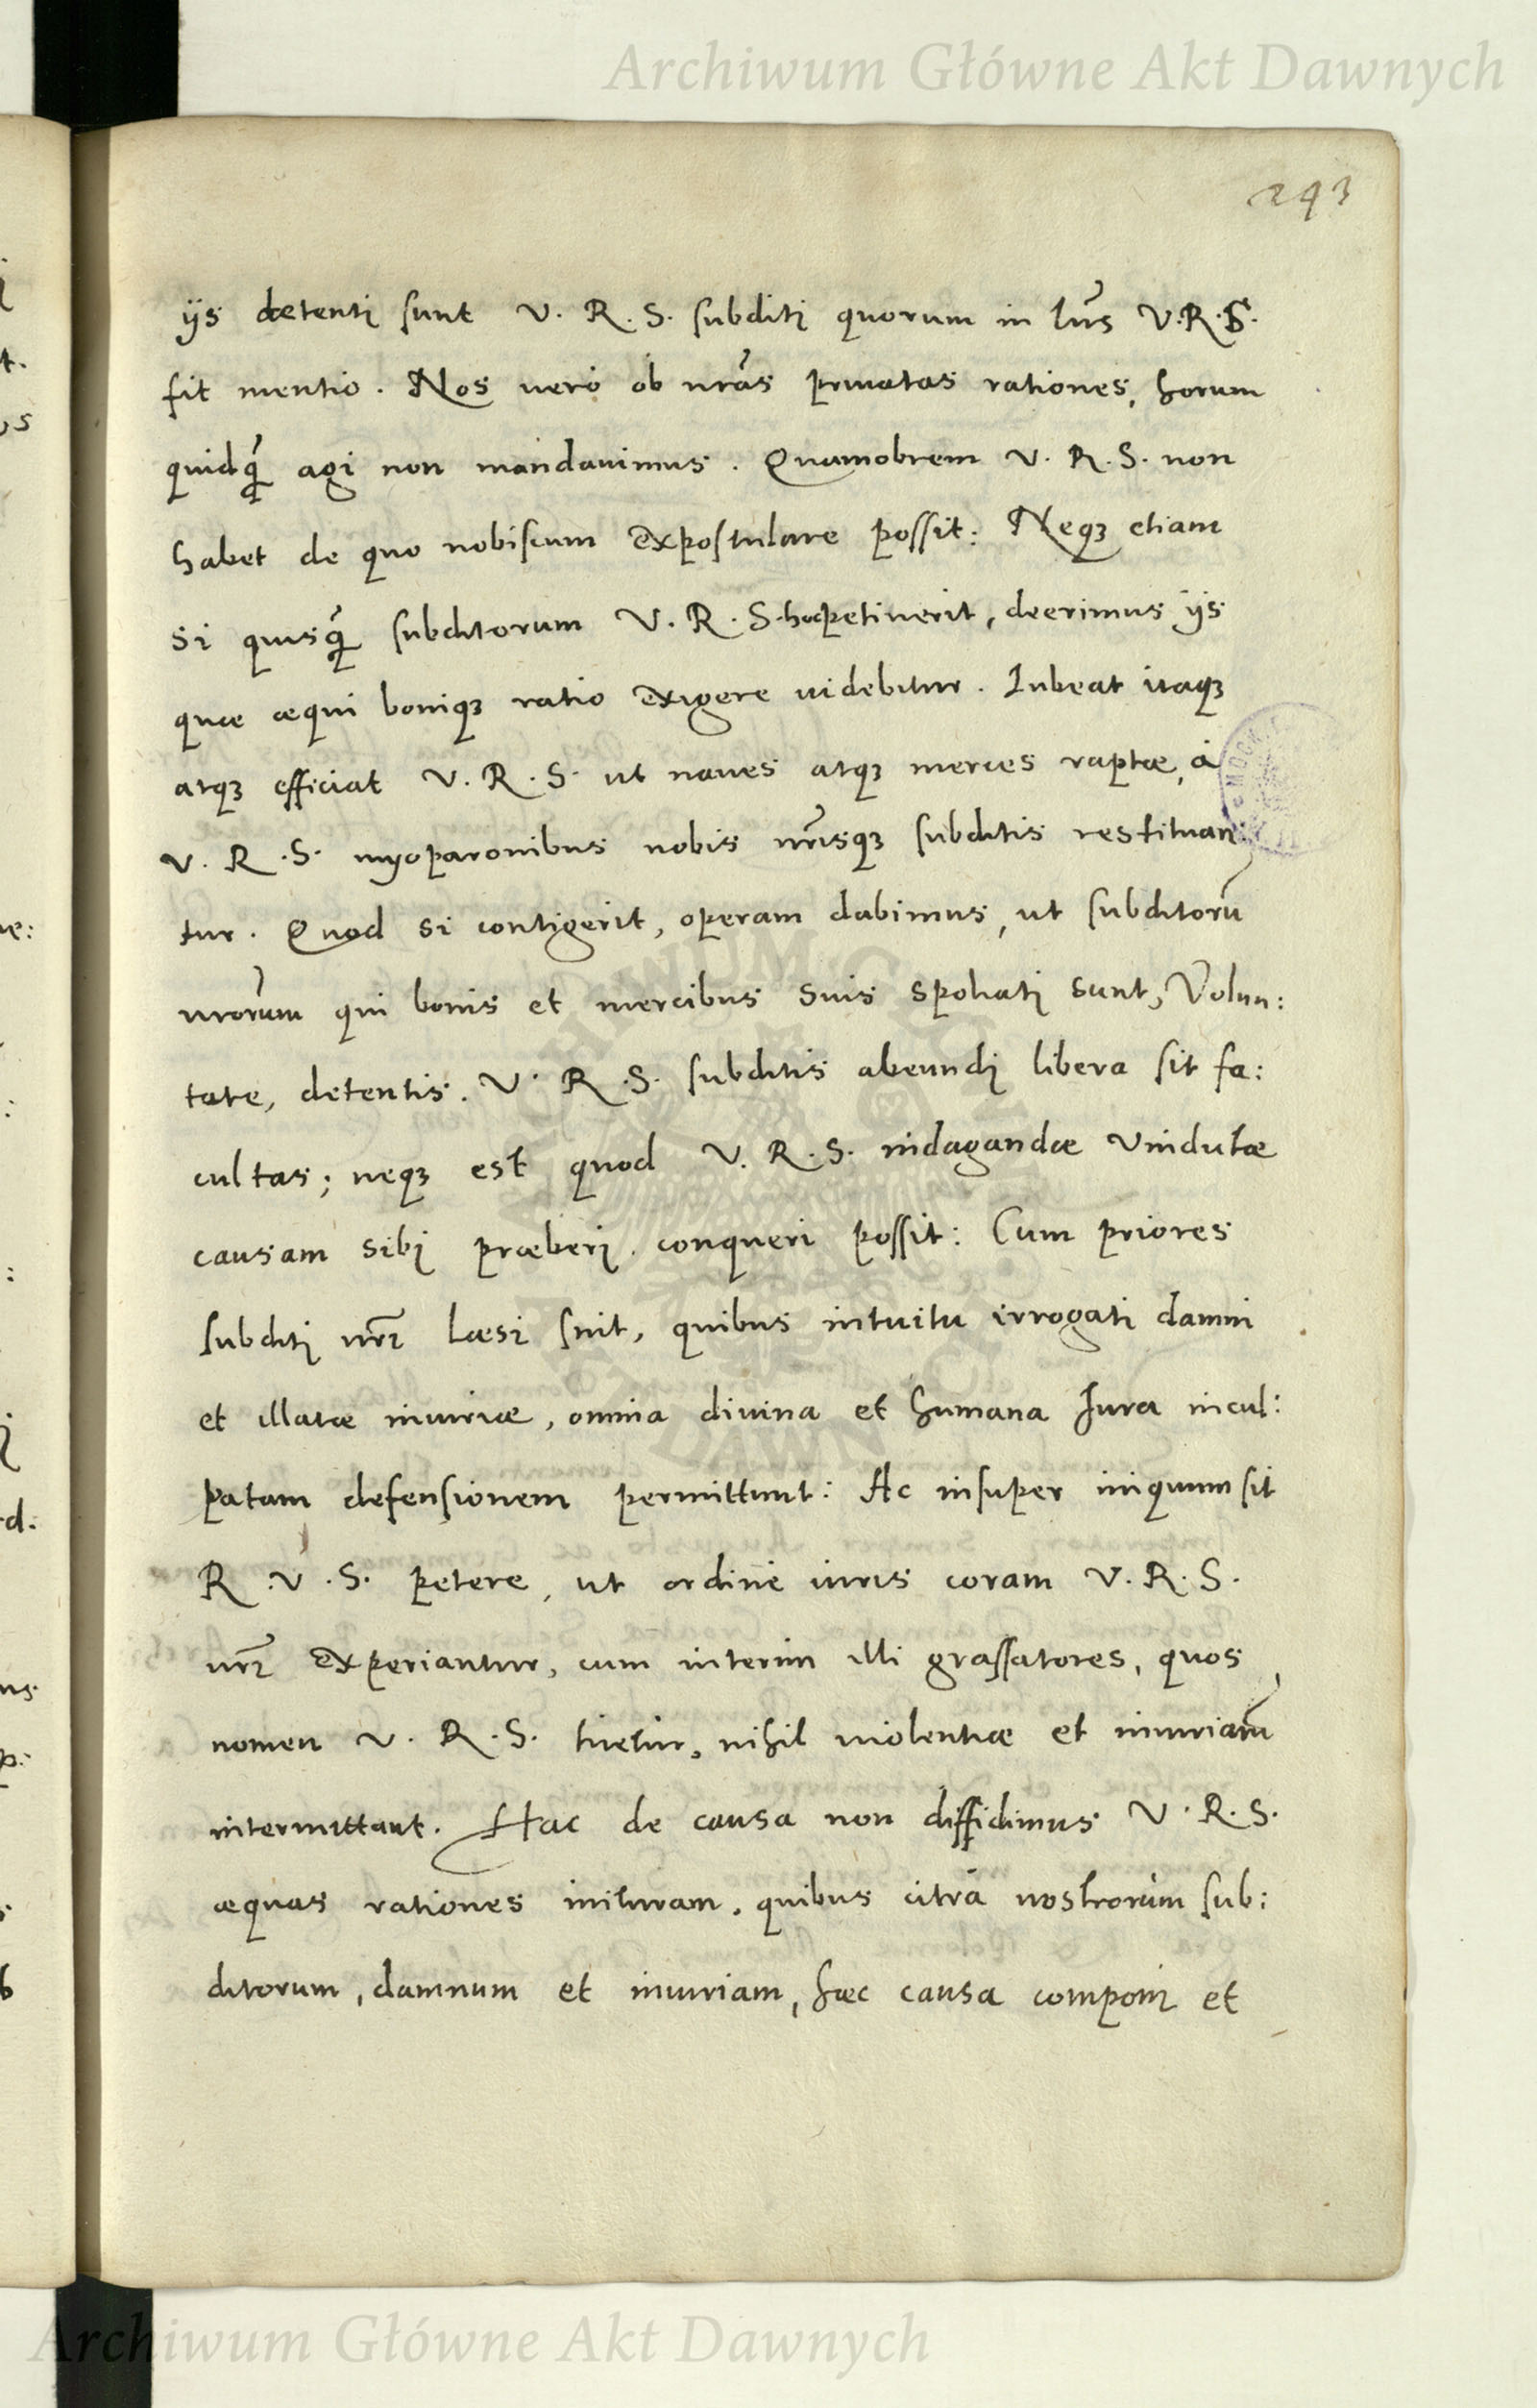 Archiwum Główne Akt Dawnych
293
ijs detenti sunt V. R. S. subditi quorum in lr̃is V.R.S.
fit mentio. Nos vero ob nrãs priuatas rationes, horum
quidq̃ agi non mandauimus. Quamobrem V. R. S. non
habet de quo nobiscum expostulare possit: Neqȝ etiam
si quisq̃ subditorum V. R. S. hoc petiuerit, deerimus ijs
quae aequi boniqȝ ratio exigere uidebitur. Iubeat itaqȝ
atqȝ efficiat V. R. S. ut naues atqȝ merces raptae, à
V. R. S. myoparonibus nobis nr̃isqȝ subditis restituan:
tur. Quod si contigerit, operam dabimus, ut subditorũ
nr̃orum qui bonis et mercibus suis spoliati sunt, Volun:
tate, detentis. V. R. S. subditis abeundi libera sit fa:
cultas; neqȝ est quod V. R. S. indagandae Vindictae
causam sibi praeberi conqueri possit: Cum priores
subditi nr̃i laesi sint, quibus intuitu irrogati damni
et illatae iniuriae, omnia diuina et humana Iura incul:
patam defensionem permittunt: Ac insuper iniquum sit
R. V. S. petere, ut ordine iuris coram V. R. S.
nr̃i experiantur, cum interim illi grassatores, quos
nomen V. R. S. tuetur, nihil uiolentiae et iniuriarũ
intermittant. Hac de causa non diffidimus V. R. S.
aequas rationes inituram, quibus citra nostrorum sub:
ditorum, damnum et iniuriam, haec causa componi et
Archiwum Główne Akt Dawnych